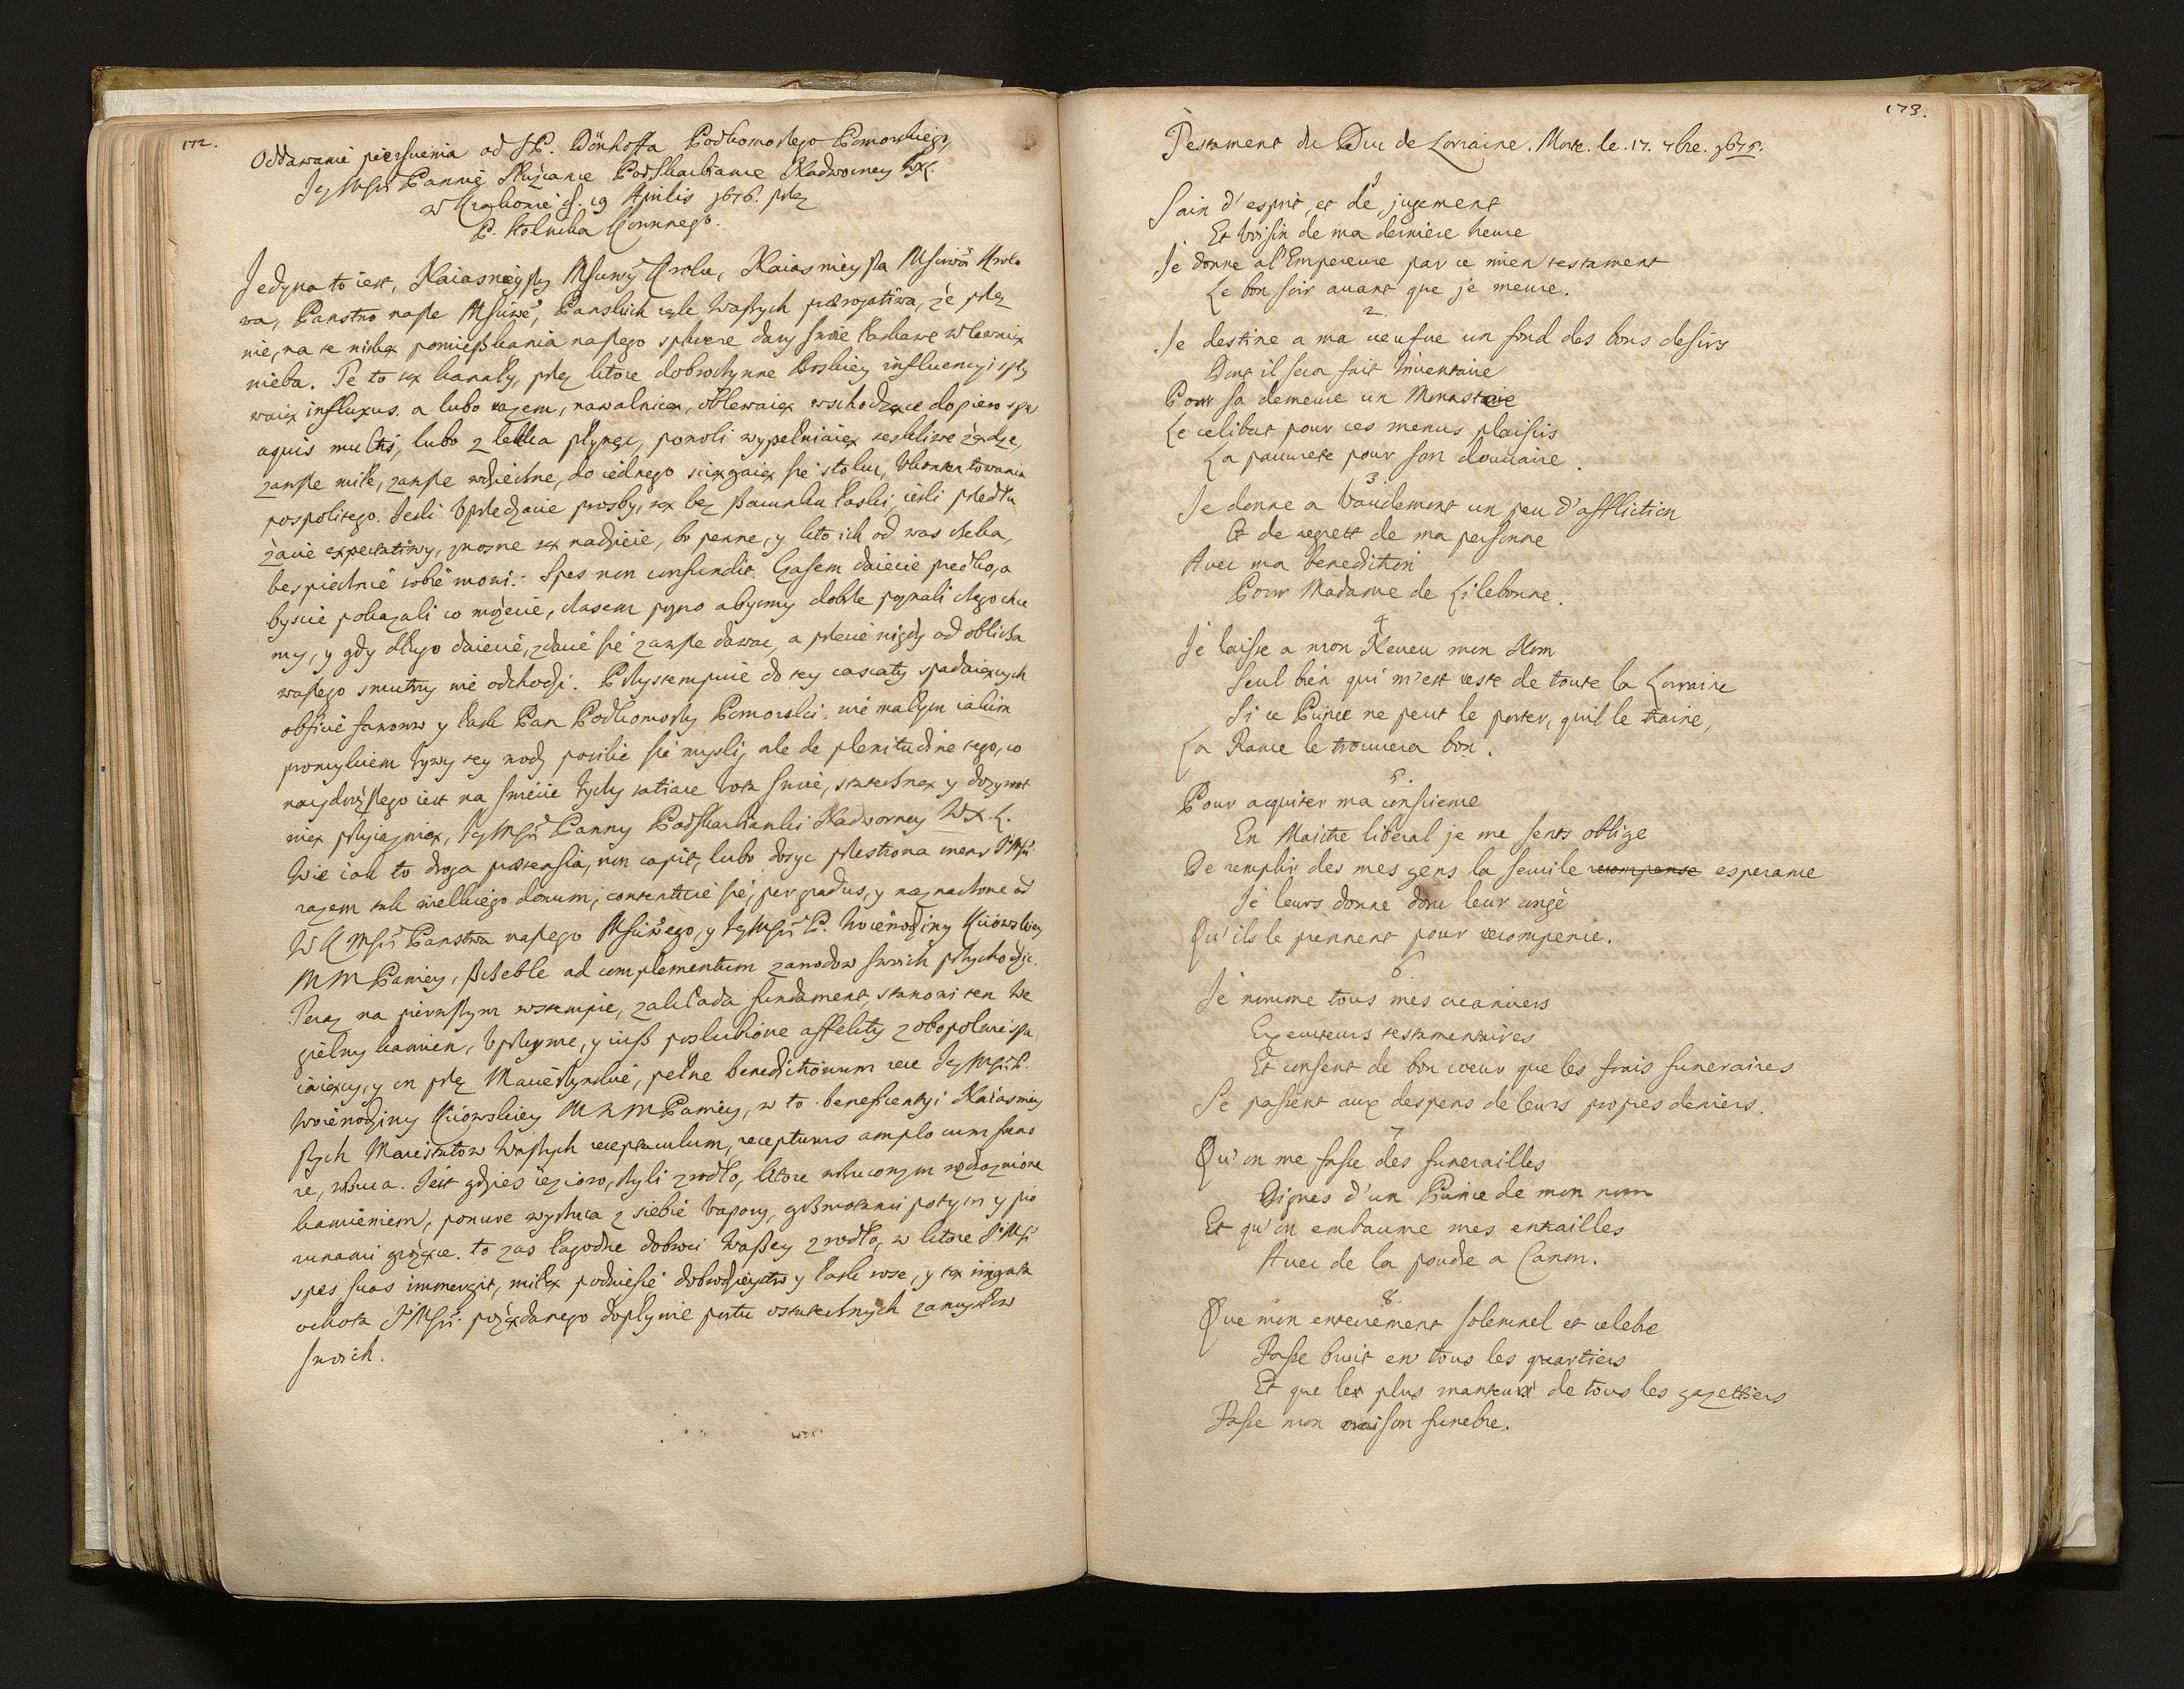 172.
Oddawanie pierscienia od JP. Dönhoffa Podkomorzego Pomorskiego
Jey Mści Pannie Służance Podskarbiance Nadworney WXL.
w Krakowie d. 19 Aprilis 1676. przez
P. Stolnika Koronnego.
Jedyna to iest, Naiasnieyszy Msciwy Krolu, Naiasnieysza Msciwa Krolo
wa, Panstwo nasze Msciwe, Panskich rąk Waszych prærogatiwa, że przez
nie, na te niską pomięszkania naszego sphere dary swoie łaskawe wlewaią
nieba. Te to są kanały, przez ktore dobroczynne Boskiey influencyi spły
waią influxus. a lubo razem, nawalnicą, oblewaią wschodzące dopiero spe
aquis multis, lubo z lekka płynąc, powoli wypełniaią teskliwe żądze,
zawsze miłe, zawsze wdzięczne, do iednego sciągaią się stolu, Vkontentowania
pospolitego. Jesli Vprzedzacie prosby, są bez szacunku łaski, iesli przedłu
żacie expectatiwy, znosne są nadzieie, bo pewne, y kto ich od was czeka,
bespiecznie sobie mowi: Spes non confundit. Czasem daiecie predko, a
byscie pokazali co możecie, czasem pozno abysmy dobrze poznali czego chce
my, y gdy długo daiecie, zdacie się zawsze dawac, a przecie nigdy od oblicza
waszego smutny nie odchodzi. Przystempuie do tey cascaty spadaiących
obficie faworow y łask Pan Podkomorzy Pomorski. nie małym iakim
promykiem żywy tey wody posilic się mysli, ale de plenitudine tego, co
naydroższego iest na swiecie życzy satiare vota swoie, stateczną y dozywot
nią przyiaznią, Jey Mści Panny Podskarbianki Nadworney WXL.
Wie iak to droga prætensia, non capit, lubo dosyc przestrona mens JMści
razem tak wielkiego donum, contentuie się, per gradus, y naznaczone od
WKMści Panstwa naszego Msciwego, y Jey Mści P. Woiewodziny Kiiowskiey
MM Paniey, szczeble ad complementum zawodow swoich przychodzic.
Teraz na pierwszym wstempie, zakłada fundament, stanowi ten We
gielny kamien, Vprzeyme, y iusz poslubione affekty z obopolnie spa
iaiący, y on przez Macierzynskie, pełne benedictionum rece Jey Mści P.
Woiewodziny Kiiowskiey M M M Paniey, w to beneficentyi Naiasniey
szych Maiestatow Waszych receptaculum, recepturus amplo cum fæno
re, wrzuca. Jest gdzies iezioro, czyli zrodło, ktore wrzuconym rozdraznione
kamieniem, ponure wyrzuca z siebie vapory, grzmotami potym y pio
runami grożące. to zas łagodne dobroci Waszey zrodło, w ktore JMść
spes suas immergit, miłą podniesie dobrodzieystw y łask rose, y tą irrigata
ochota JMści pożądanego dopłynie portu ostatecznych zamysłow
swoich.
173.
Testament du Duc de Lorraine. Mort. le. 17. 7bre. 1675.
1
Sain d'esprit, et de jugement
Et voisin de ma derniere heure
Je donne al'Empereure par ce mien testament
Le bon soir auant que je meure.
2.
Je destine a ma ueufue un fond des bons desirs
Dont il sera fait Inuentaire
Pour sa demeure un Monastaire
Le celibat pour ces menus plaisirs
La pauurete pour son douuaire.
3.
Je donne a Vaudemont un peu d'affliction
Et de regrett de ma personne
Auec ma benediction
Pour Madame de Lilebonne.
4
Je laisse a mon Neueu mon Nom
Seul bien qui m'est reste de toute la Lorraine
Si ce Prince ne peut le porter, quil le traine,
La France le trouuera bon.
5.
Pour aquiter ma conscience
En Maistre liberal je me sents oblige
De remplir des mes gens la seruile recompense esperance
Je leurs donne donc leur congè
Qu'ils le prennent pour recompence.
6.
Je nomme tous mes creanciers
Executeurs testamentaires
Et consent de bon coeur que les frais funeraires
Se passent aux despens de leurs propres deniers.
7
Qu'on me fasse des funerailles
Dignes d'un Prince de mon nom
Et qu'on embaume mes entrailles
Auec de la poudre a Canon.
8.
Que mon enterrement solemnel et celebre
Fasse bruit en tous les quartiers
Et que les plus manteurs de tous les gazettiers
Fasse mon oraison funebre.